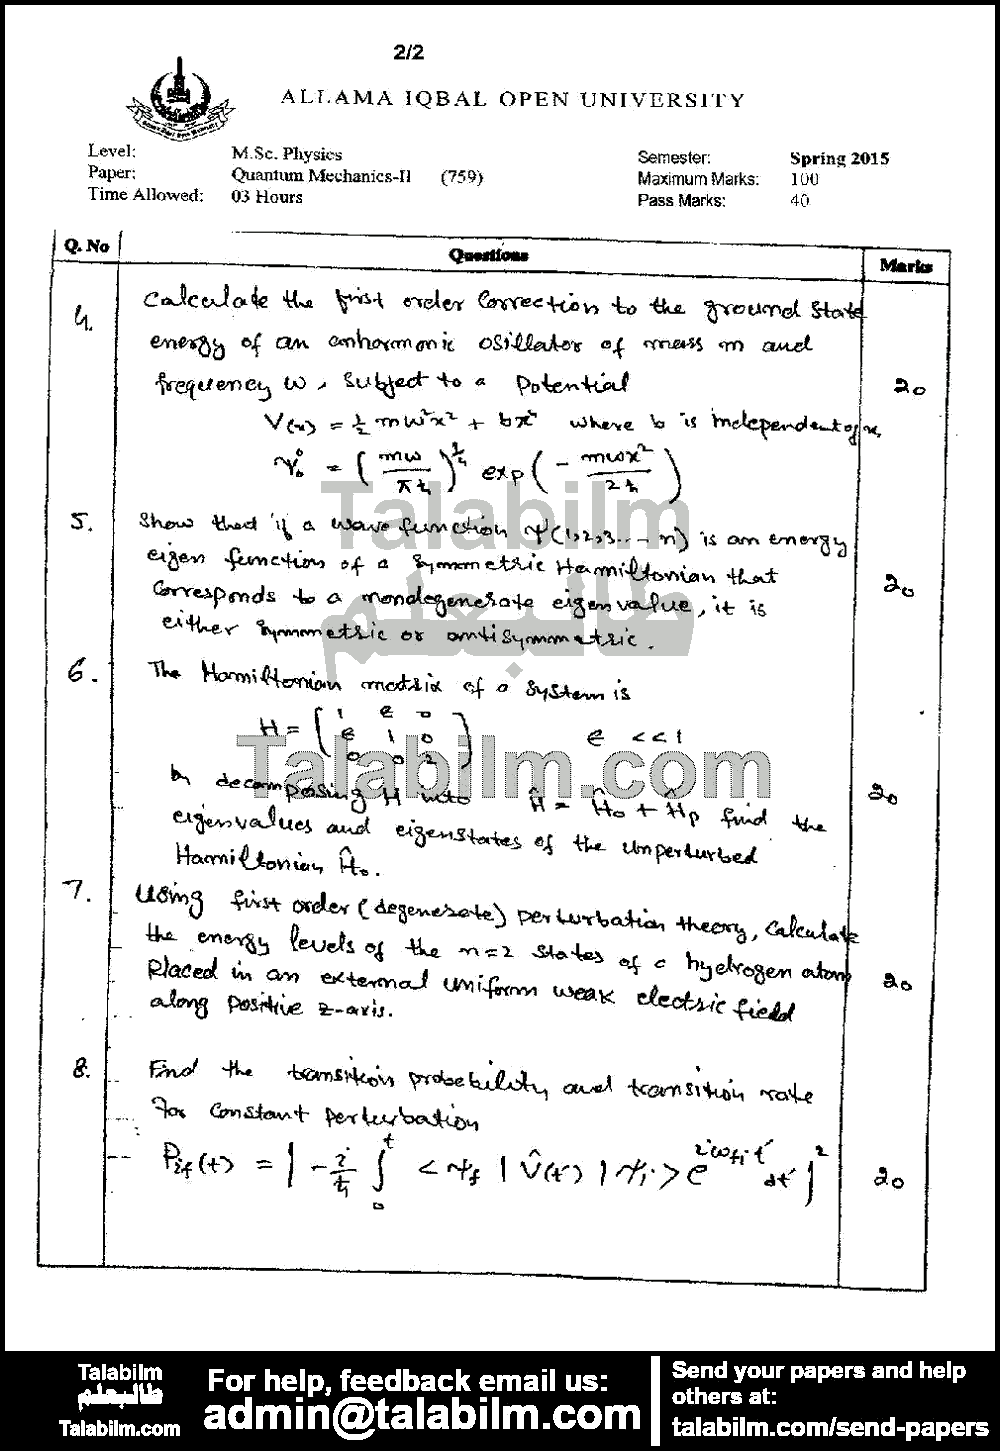 2/2
ALLAMA IQBAL OPEN UNIVERSITY
Level: M.Sc. Physics
Paper: Quantum Mechanics-II (759)
Time Allowed: 03 Hours
Semester: Spring 2015
Maximum Marks: 100
Pass Marks: 40
Q. No Questions Marks
4. Calculate the first order Correction to the ground state
energy of an anharmonic osillator of mass m and
frequency w, Subject to a Potential 20
V(x) = ½ mw²x² + bx⁴ where b is independent of x.
ψ₀⁰ = (mw/πħ)^¼ exp(- mwx²/2ħ)
5. Show that if a wave function Ψ(1,2,3...-n) is an energy
eigen function of a symmetric Hamiltonian that
Corresponds to a nondegenerate eigenvalue, it is 20
either symmetric or antisymmetric.
6. The Hamiltonian matrix of a system is
H = (1 e 0
e 1 0
0 0 2) e <<1
by decomposing H into Ĥ = Ĥ₀ + Ĥp find the 20
eigenvalues and eigenstates of the unperturbed
Hamiltonian Ĥ₀.
7. Using first order (degenerate) perturbation theory, Calculate
the energy levels of the n=2 states of a hydrogen atom
Placed in an external uniform weak electric field 20
along Positive z-axis.
8. Find the transition probability and transition rate
For constant perturbation
Pif(t) = |-i/ħ ∫₀ᵗ <ψf | V̂(t') | ψi> e^{iωfi t'} dt'|² 20
Talabilm
طالبعلم
Talabilm.com
Talabilm
طالبعلم
Talabilm.com
For help, feedback email us:
admin@talabilm.com
Send your papers and help
others at:
talabilm.com/send-papers